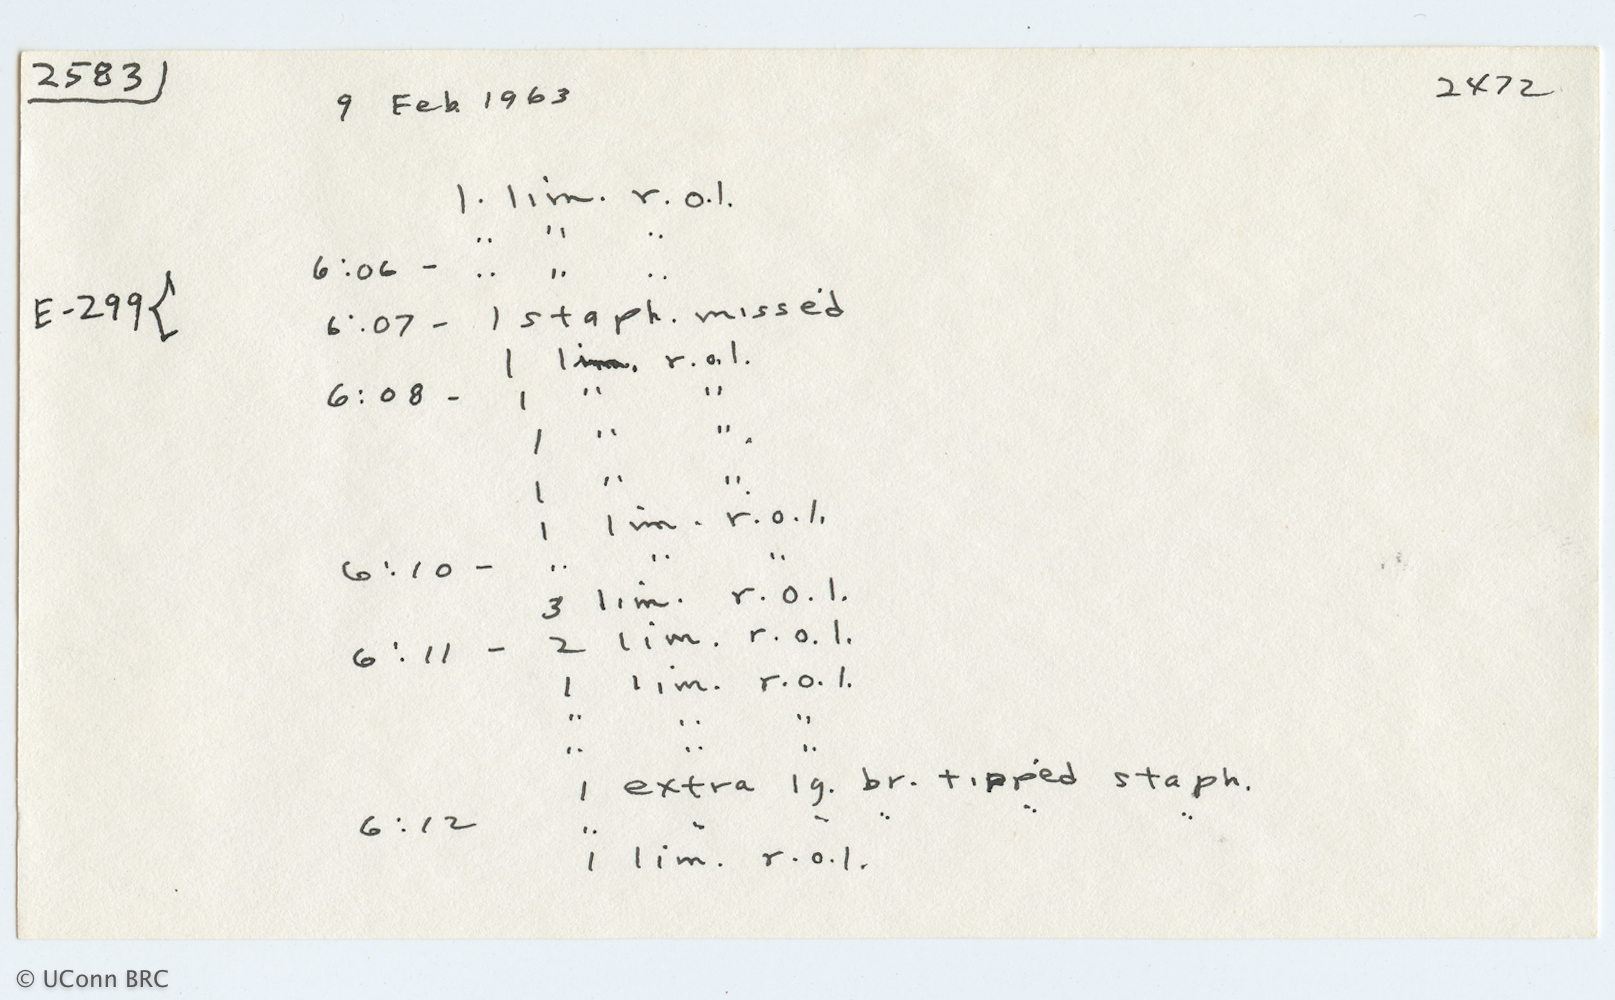 2583
9 Feb. 1963
2472
1. lim. r.o.l.
" " "
6:06 - " " "
E-299{
6:07 - 1 staph. missed
1 lim. r.o.l.
6:08 - 1 " "
1 " ".
1 " ".
1 lim. r.o.l.
6:10 - " " "
3 lim. r.o.l.
6:11 - 2 lim. r.o.l.
1 lim. r.o.l.
" " "
" " "
1 extra lg. br. tipped staph.
6:12 " " " " " "
1 lim. r.o.l.
© UConn BRC